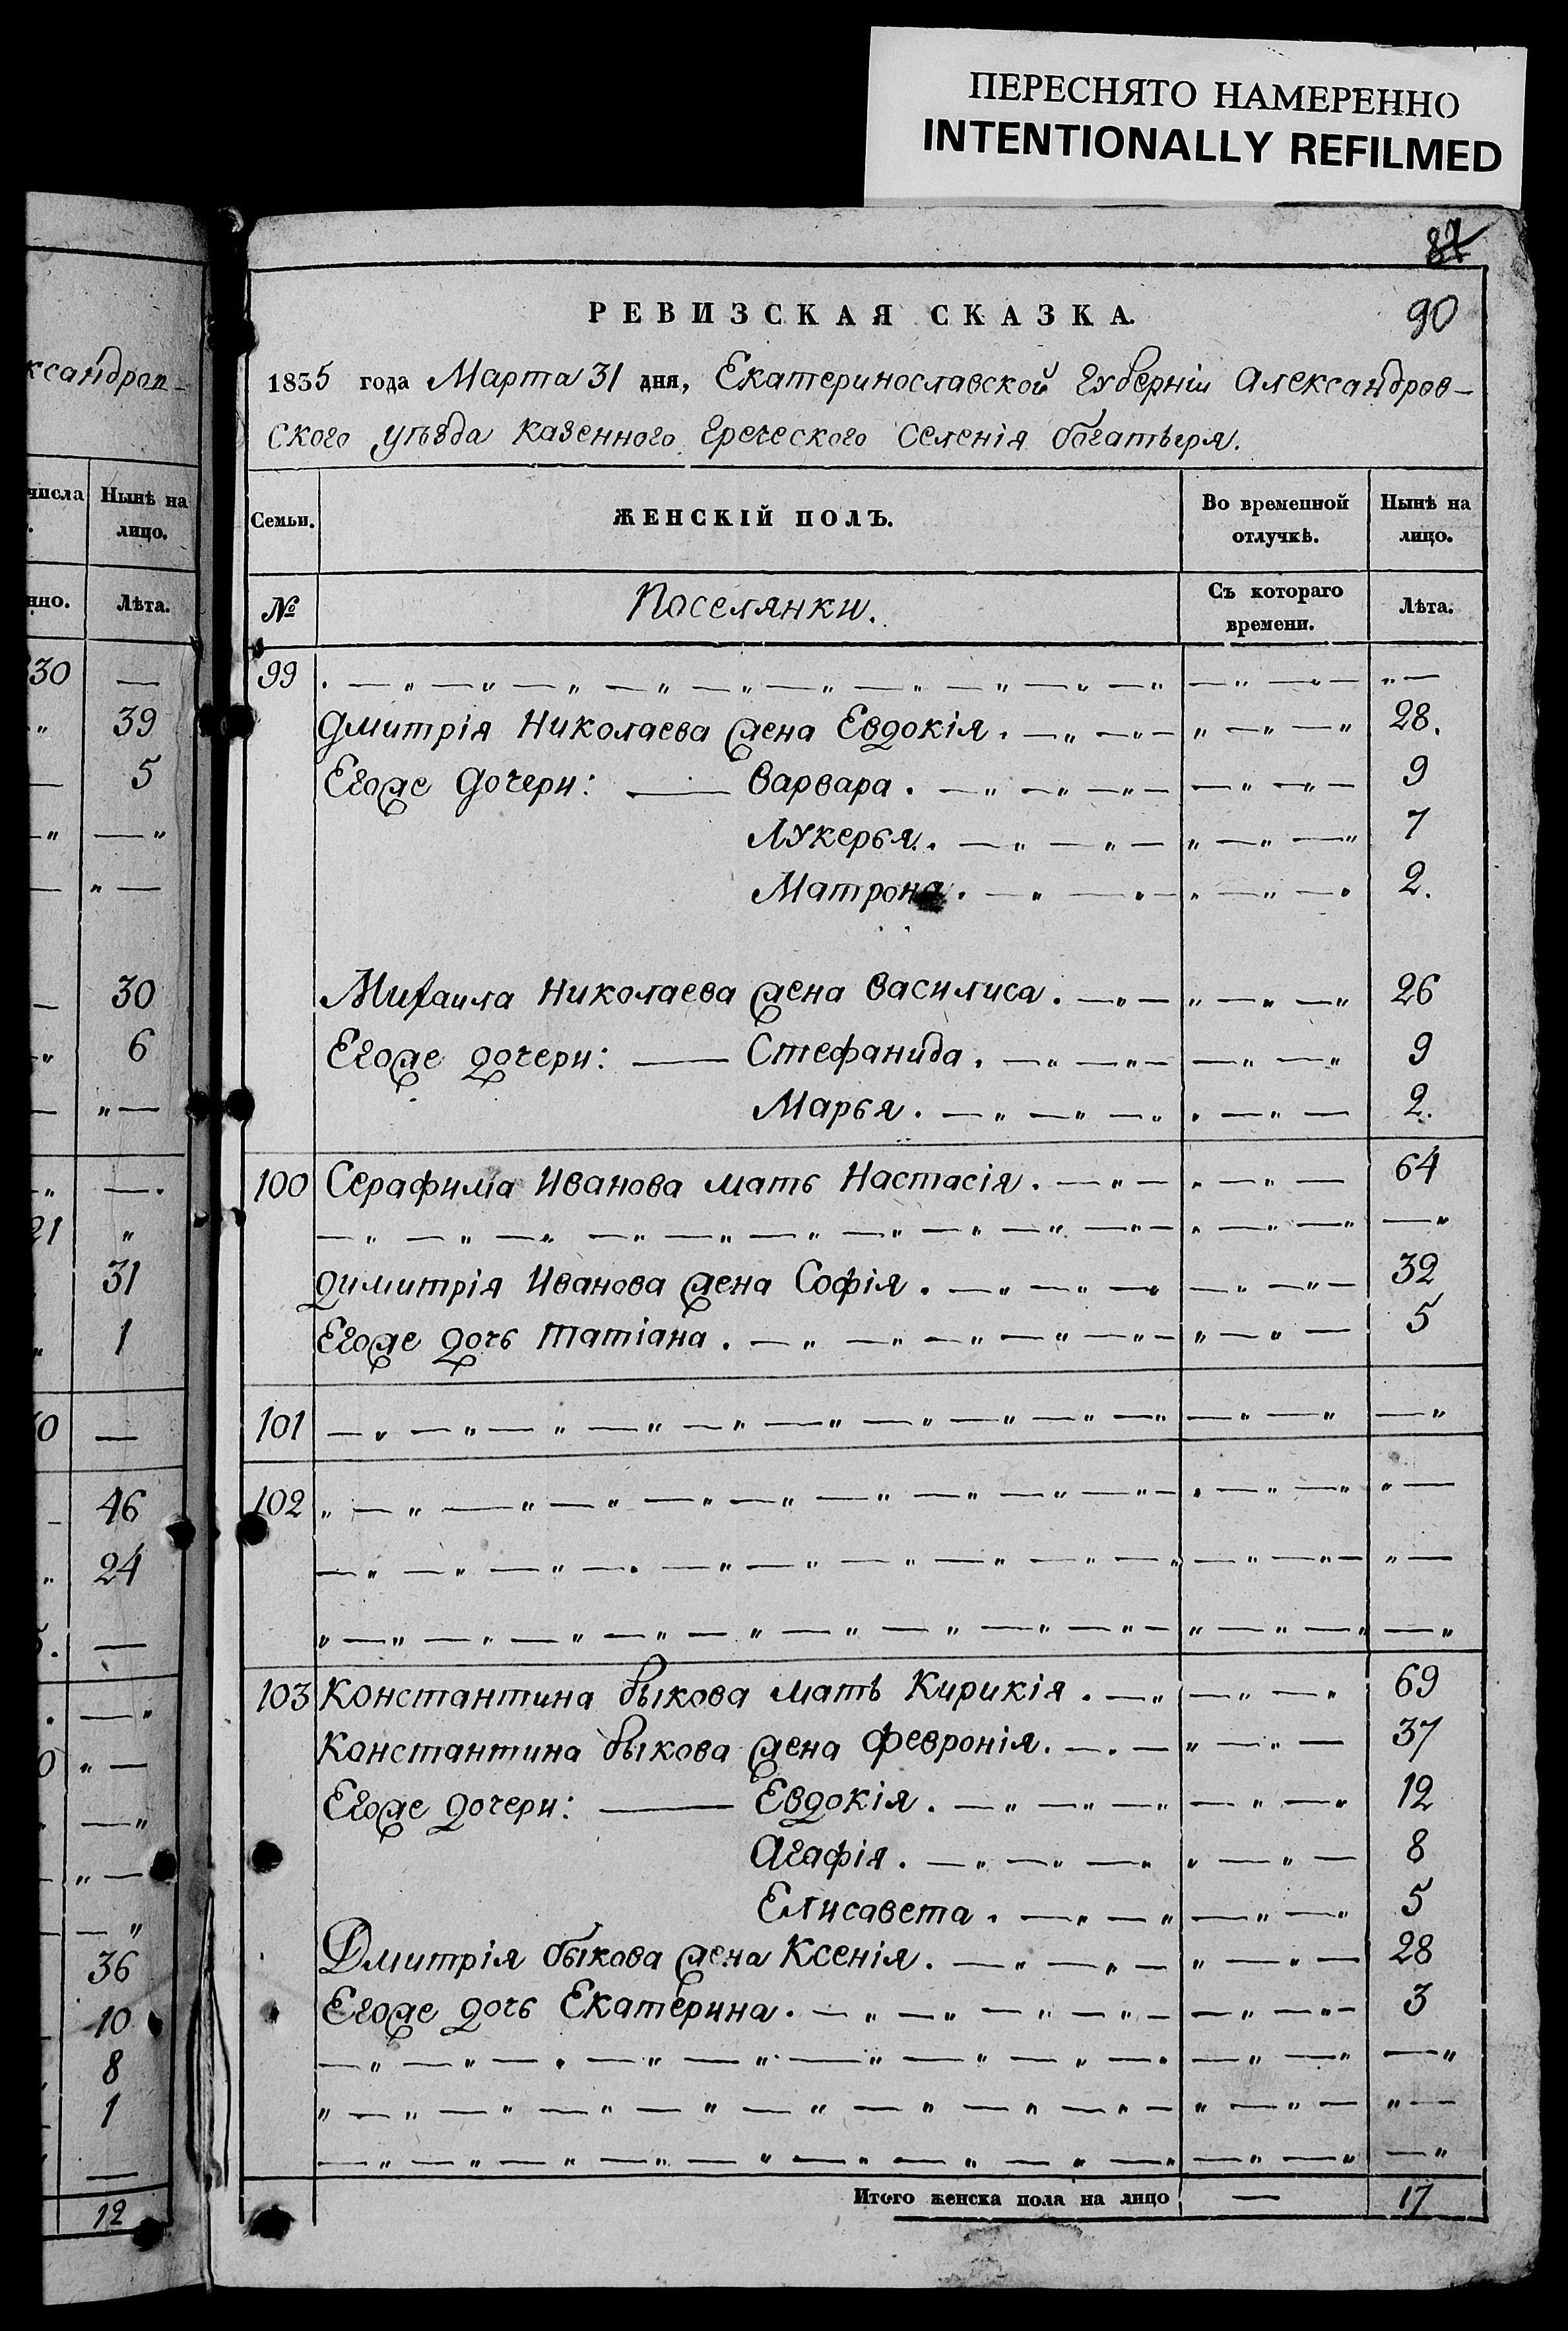 ПЕРЕСНЯТО НАМЕРЕННО
INTENTIONALLY REFILMED
87
90
РЕВИЗСКАЯ СКАЗКА.
1835 года Марта 31 дня, Екатеринославской Губерніи Александров-
ского уѣзда казенного греческого Селенія богатыря.
Семьи. ЖЕНСКІЙ ПОЛЪ. Во временной отлучкѣ. Нынѣ на лицо.
№ Поселянки. Съ котораго времени. Лѣта.
99 . — „ — „ — „ — „ — „ — „ — „ — „ — „ — „ — „ — „ — „ —
Дмитрія Николаева жена Евдокія . — „ — „ — „ — „ — „ 28.
Егоже дочери: — Варвара . — „ — „ — „ — — „ — „ — 9
Лукерья . — „ — „ — „ — „ — „ 7
Матрона . — „ — „ — „ — „ — „ 2.
Михаила Николаева жена Василиса . — „ — „ — „ — „ 26
Егоже дочери: — Стефанида . — „ — „ — — „ — „ 9
Марья . — „ — „ — „ „ — „ — 2.
100 Серафима Иванова мать Настасія . — „ — „ — „ — 64
— „ — „ — „ — „ — „ — „ — „ — „ — „ — „ — „ — „ — „ — „
Димитрія Иванова жена Софія . — „ — „ — „ — „ — „ — 32
Егоже дочь Татіана . — „ — „ — „ — „ — „ — „ — „ — 5
101 — „ — „ — „ — „ — „ — „ — „ — „ — „ — „ — „ — „ — „
102 „ — „ — „ — „ — „ — „ — „ — „ — „ — „ — „ — „ — „ „ —
— „ — „ — „ — „ — „ — „ — „ — „ — „ — „ — „ — „ — „ —
„ — „ — „ — „ — „ — „ — „ — „ — „ — „ — „ — „ — „ — „
103 Константина быкова мать Кирикія . — „ — „ — „ 69
Константина быкова жена Февронія . — „ — „ — „ — 37
Егоже дочери: — Евдокія . — „ — „ — „ — „ — „ 12
Агафія . — „ — „ — „ „ — „ — 8
Елисавета . — „ — „ — „ — „ 5
Дмитрія быкова жена Ксенія . — „ — „ — „ — „ — 28
Егоже дочь Екатерина . — „ — „ — „ — „ — — „ — „ — 3
— „ — „ — „ — „ — „ — „ — „ — „ — „ — „ — „ — „
„ — „ — „ — „ — „ — „ — „ — „ — „ — „ — „ — „ — „ —
— „ — „ — „ — „ — „ — „ — „ — „ — „ — „ — „ — „ — „
Итого женска пола на лицо — 17
ксандров-
числа Нынѣ на лицо.
нно. Лѣта.
30 —
„ 39
— 5
— „ — „
— „ —
— 30
— „ 6
— „ —
— „ — .
21 „
31
„ 1
—
— 46
„ 24
. —
. — „
0 „ —
— „
— „ —
— — „
36
10
8
1
—
12